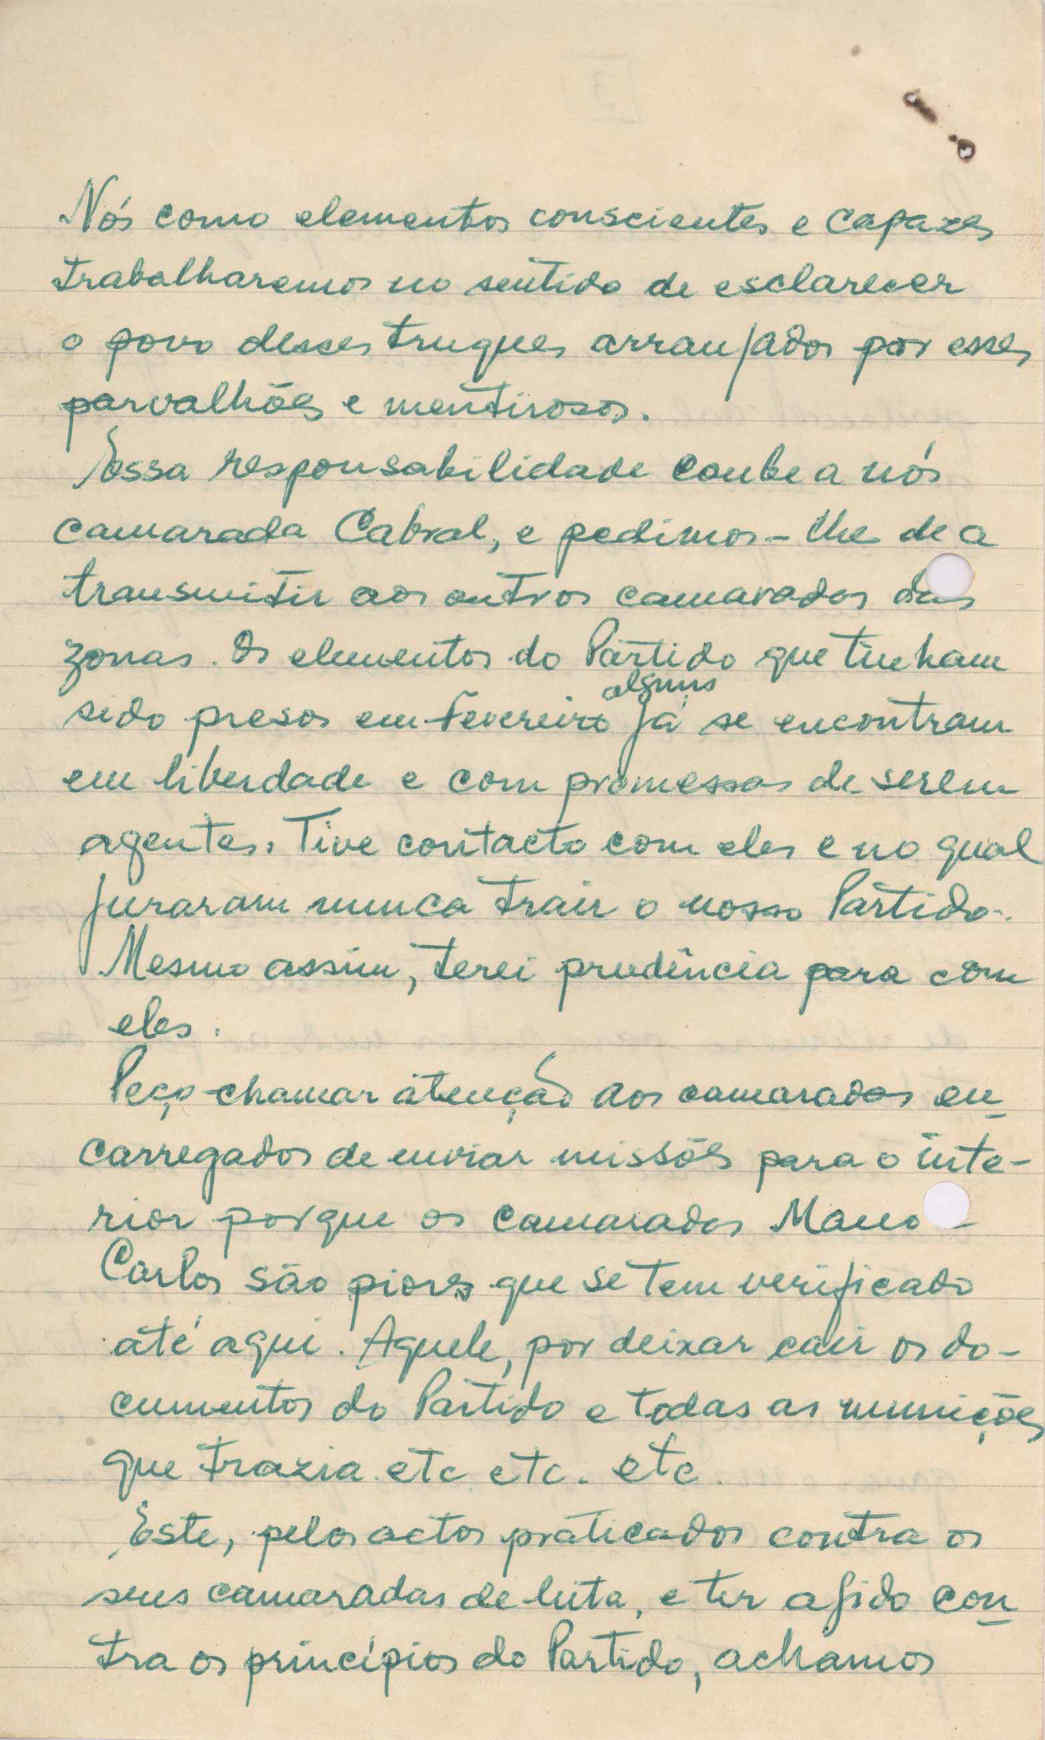 Nós como elementos conscientes e capazes
trabalharemos no sentido de esclarecer
o povo desses truques arranjados por esses
parvalhões e mentirosos.
Essa responsabilidade coube a nós
camarada Cabral, e pedimos-lhe de a
transmitir aos outros camaradas das
zonas. Os elementos do Partido que tinham
alguns
sido presos em Fevereiro já se encontram
em liberdade e com promessas de serem
agentes. Tive contacto com eles e no qual
juraram nunca trair o nosso Partido.
Mesmo assim, terei prudência para com
eles.
Peço chamar atenção aos camaradas en-
carregados de enviar missões para o inte-
rior porque os camaradas Mano -
Carlos são piores que se tem verificado
até aqui. Aquele, por deixar cair os do-
cumentos do Partido e todas as munições
que trazia etc etc. etc
Este, pelos actos praticados contra os
seus camaradas de luta, e ter agido con-
tra os princípios do Partido, achamos